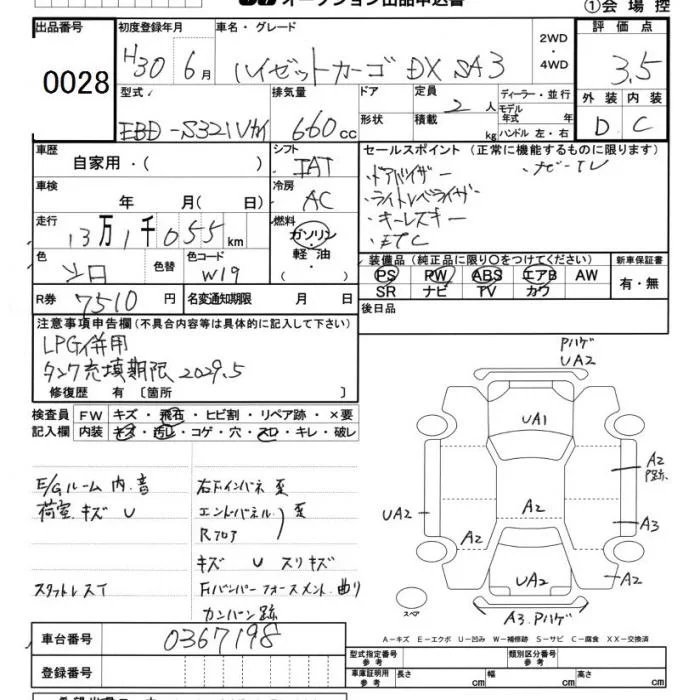 オークション出品申込書
①会場控
出品番号
0028
初度登録年月
H30 6月
車名・グレード
ハイゼットカーゴ DX SA3
2WD
・
4WD
評価点
3.5
外装 内装
D C
型式
EBD-S321V
排気量
660cc
ドア
形状
定員
2人
積載
kg
ディーラー・並行
モデル
年式 年
ハンドル 左・右
車歴
自家用・( )
シフト
IAT
セールスポイント(正常に機能するものに限ります)
・ドアバイザー ・ナビ-TV
・ライトレベライザー
・キーレスキー
・ETC
車検
年 月( 日)
冷房
AC
走行
13万1千055km
燃料
ガソリン
・
軽油
・
( )
色
シロ
色替
色コード
W19
装備品(純正品に限り○をつけてください)
PS PW ABS エアB AW
SR ナビ TV カワ
新車保証書
有・無
R券
7510円
名変通知期限 月 日
後日品
注意事項申告欄(不具合内容等は具体的に記入して下さい)
LPG併用
タンク充填期限 2029.5
修復歴 有 〔箇所 〕
検査員
記入欄
FW キズ・飛石・ヒビ割・リペア跡・×要
内装 キズ・汚レ・コゲ・穴・スレ・キレ・破レ
E/Gルーム 内.音
荷室.キズ U
スタットレスT
右Fインパネ 歪
エンドパネル 歪
Rフロア
キズ U スリキズ
Fバンパーフォースメント.曲り
カンバン跡
Pハゲ
UA2
UA1
A2
P跡
UA2
A2
A3
A2
UA2
A2
スペア
A3.Pハゲ
A-キズ E-エクボ U-凹み W-補修跡 S-サビ C-腐食 XX-交換済
車台番号
0367198
登録番号
型式指定番号
参考
類別区分番号
参考
車庫証明用
参考
長さ cm 幅 cm 高さ cm